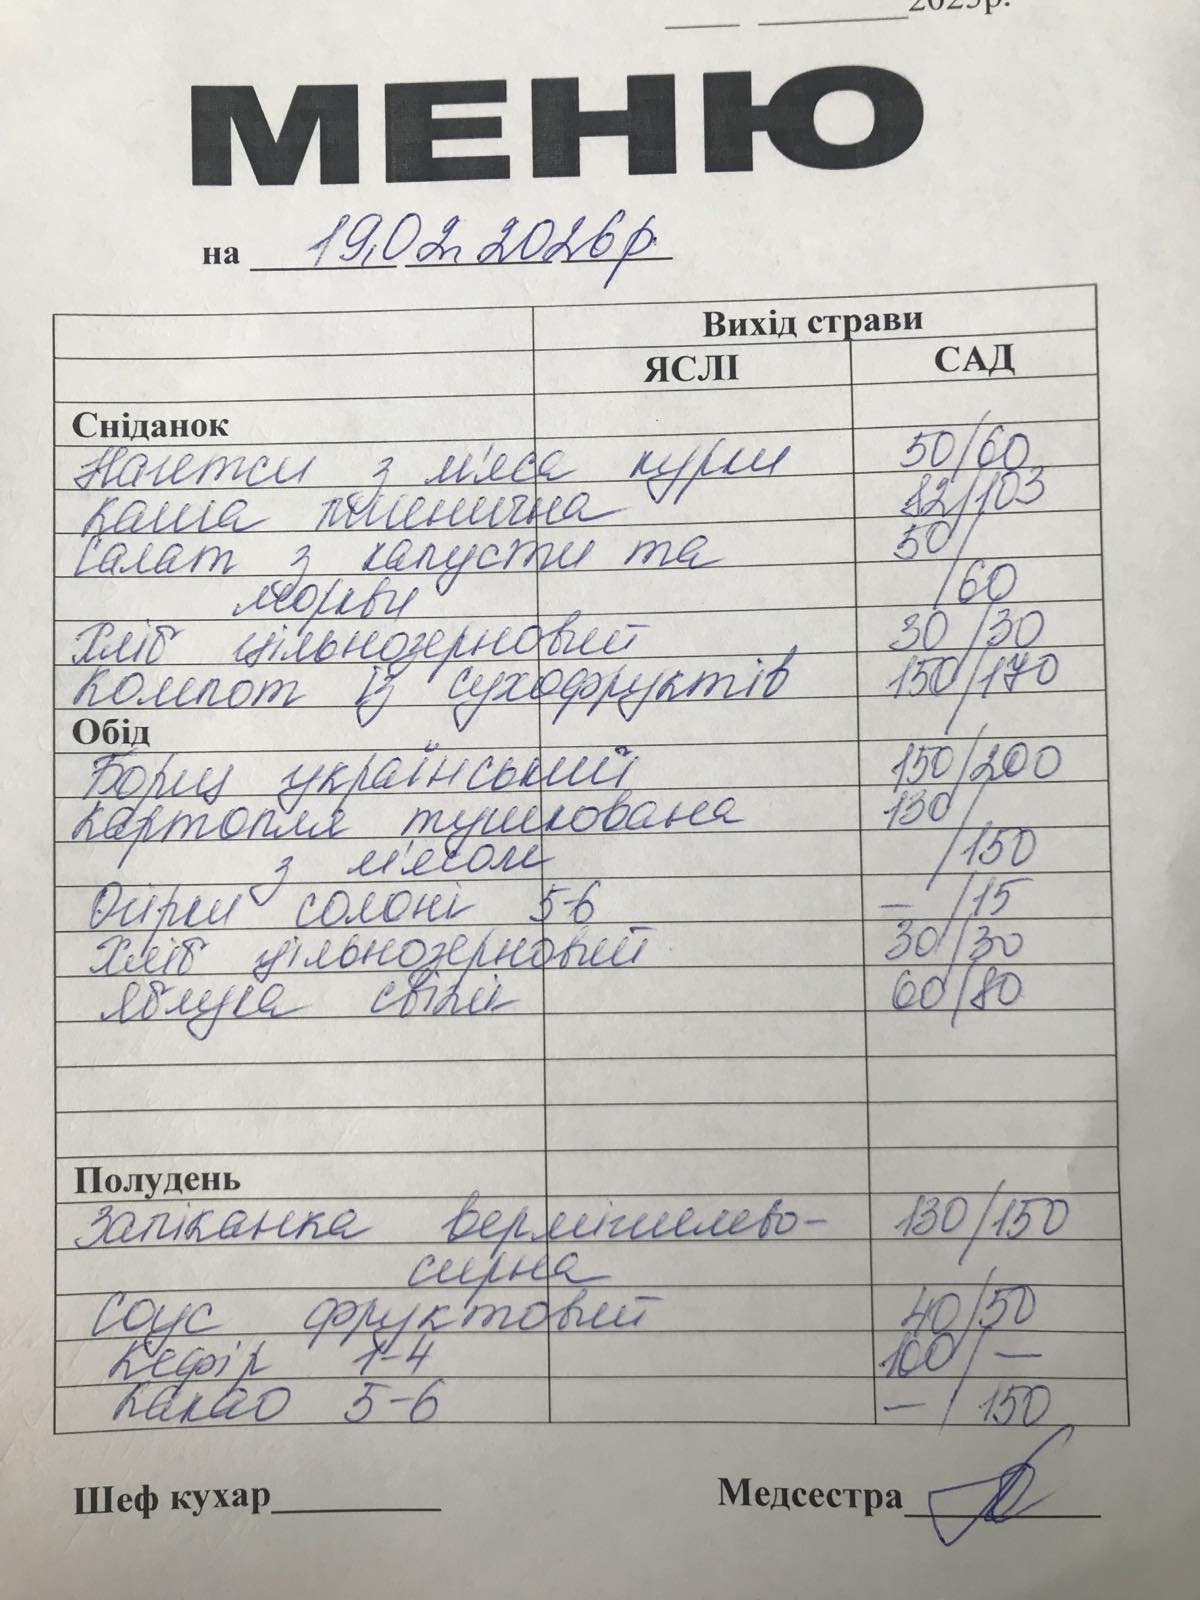 2025р.
МЕНЮ
на 19.02. 2026р.
Вихід страви
ЯСЛІ САД
Сніданок
Нагетси з м'яса курки 50/60
Каша пшенична 82/103
Салат з капусти та 50/
моркви /60
Хліб цільнозерновий 30/30
Компот із сухофруктів 150/170
Обід
Борщ український 150/200
Картопля тушкована 130/
з м'ясом /150
Огірки солоні 5-6 -/15
Хліб цільнозерновий 30/30
Яблука свіжі 60/80
Полудень
Запіканка вермішелево- 130/150
сирна
Соус фруктовий 40/50
Кефір 1-4 100/-
Какао 5-6 -/150
Шеф кухар Медсестра